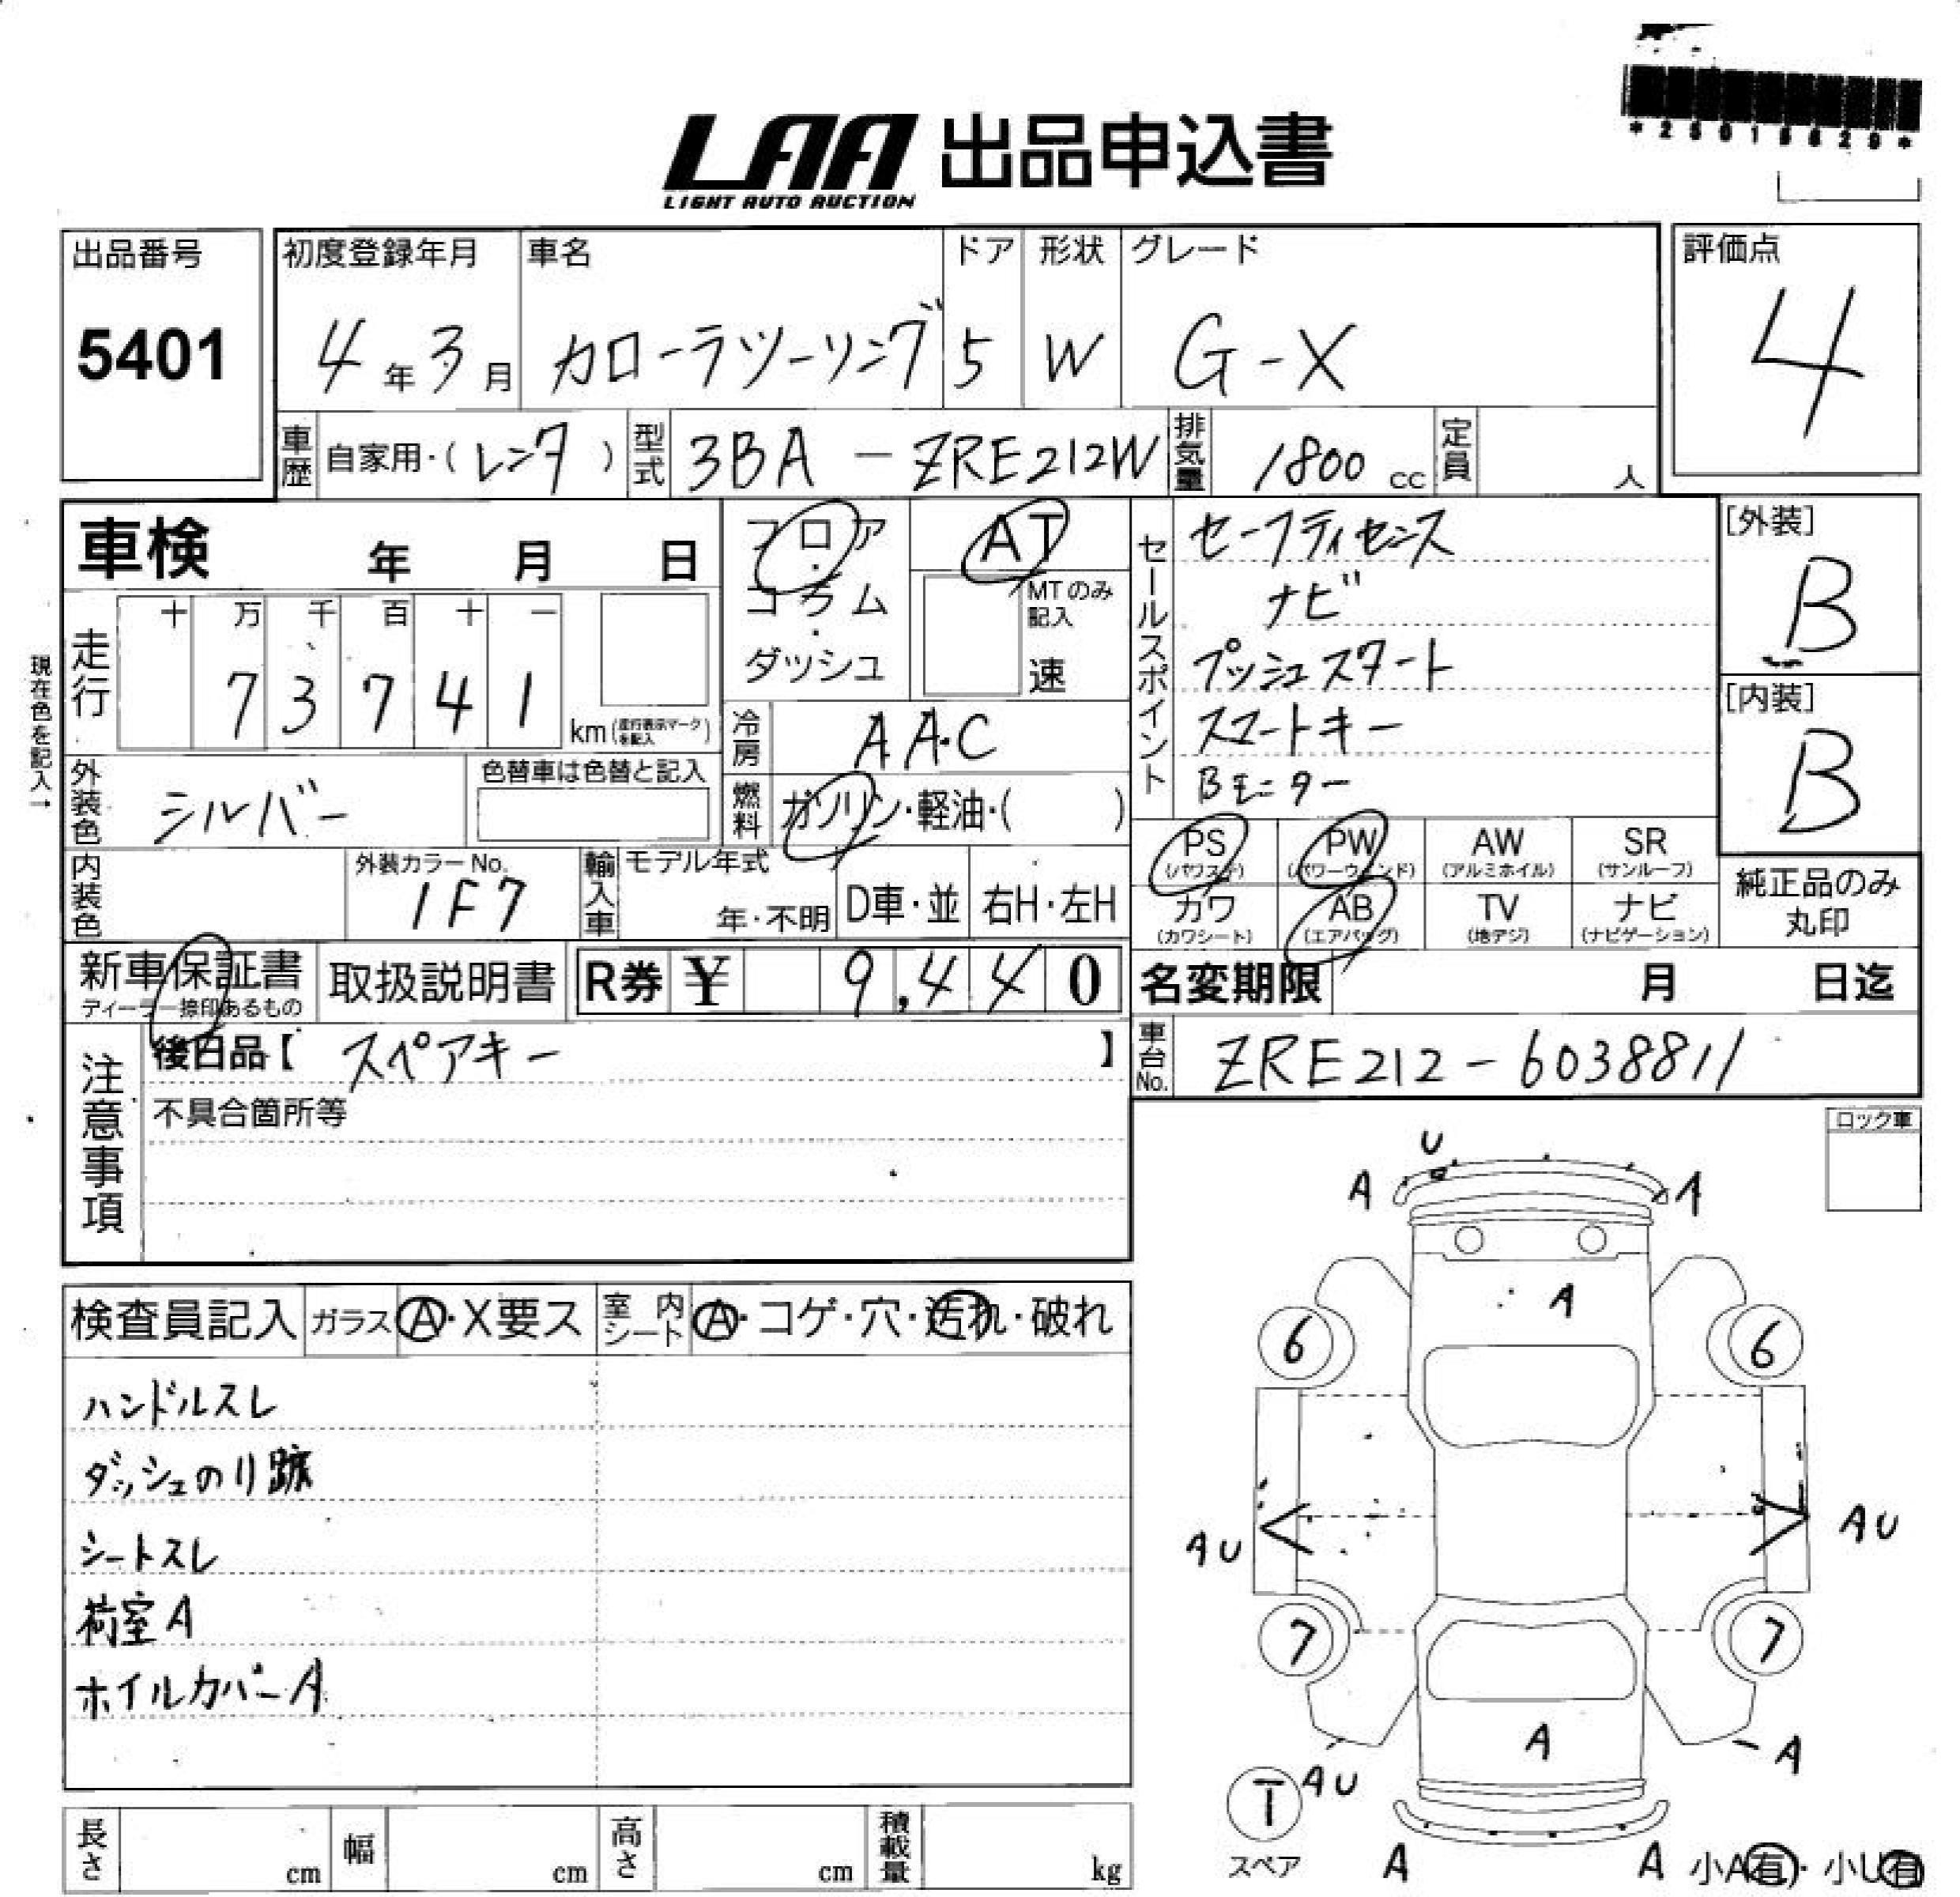 LAA 出品申込書
LIGHT AUTO AUCTION
出品番号
5401
初度登録年月
4年3月
車名
カローラツーリング
ドア
5
形状
W
グレード
G-X
評価点
4
車歴 自家用・(レンタ)
型式 3BA-ZRE212W
排気量 1800 cc
定員 人
車検 年 月 日
フロア・コラム・ダッシュ
AT
MTのみ記入
速
現在色を記入→
走行
十 万 千 百 十 一
7 3 7 4 1
km(走行表示マークを記入)
冷房 AAC
燃料 ガソリン・軽油・( )
外装色 シルバー
色替車は色替と記入
内装色
外装カラーNo.
1F7
輸入車
モデル年式
年・不明
D車・並
右H・左H
セールスポイント
セーフティセンス
ナビ
プッシュスタート
スマートキー
Bモニター
[外装]
B
[内装]
B
PS (パワステ)
PW (パワーウィンド)
AW (アルミホイル)
SR (サンルーフ)
カワ (カワシート)
AB (エアバッグ)
TV (地デジ)
ナビ (ナビゲーション)
純正品のみ丸印
新車保証書
ディーラー捺印あるもの
取扱説明書
R券 ¥ 9,440
名変期限 月 日迄
車台No. ZRE212-6038811
注意事項
後日品【 スペアキー 】
不具合箇所等
ロック車
検査員記入
ガラス A・X要ス
室内シート A・コゲ・穴・汚れ・破れ
ハンドルスレ
ダッシュのり跡
シートスレ
荷室A
ホイルカバーA
U
A
A
A
6
6
AU
AU
7
7
A
AU
A
T
スペア
A
A
小A有・小U有
長さ cm
幅 cm
高さ cm
積載量 kg